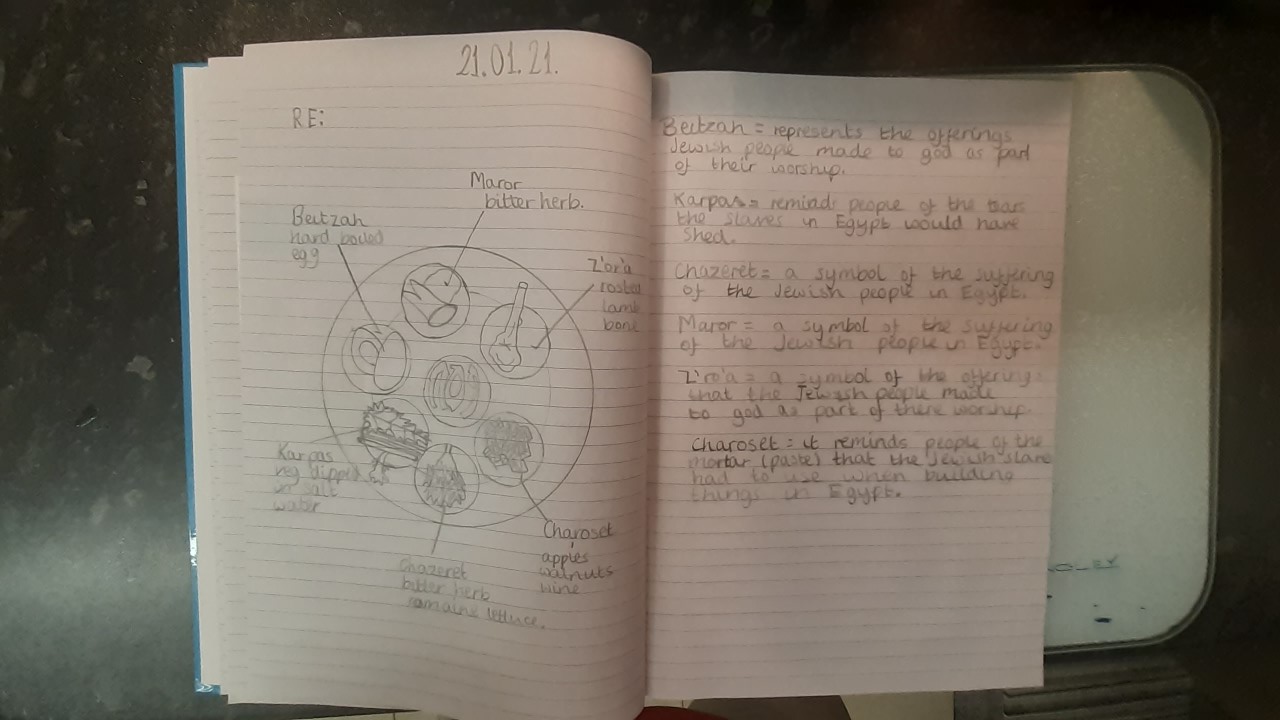 21.01.21.
RE:
Maror
bitter herb.
Beitzah
hard boiled
egg
Z'or'a
rosted
lamb
bone
Karpas
veg dipped
in salt
water
Charoset
apples
walnuts
wine
Chazeret
bitter herb
romaine lettuce.
Beitzah = represents the offerings
Jewish people made to god as part
of their worship.
Karpas = reminds people of the tears
the slaves in Egypt would have
shed.
Chazeret = a symbol of the suffering
of the Jewish people in Egypt.
Maror = a symbol of the suffering
of the Jewish people in Egypt.
Z'ro'a = a symbol of the offerings
that the Jewish people made
to god as part of there worship.
Charoset = it reminds people of the
mortar (paste) that the Jewish slave
had to use when building
things in Egypt.